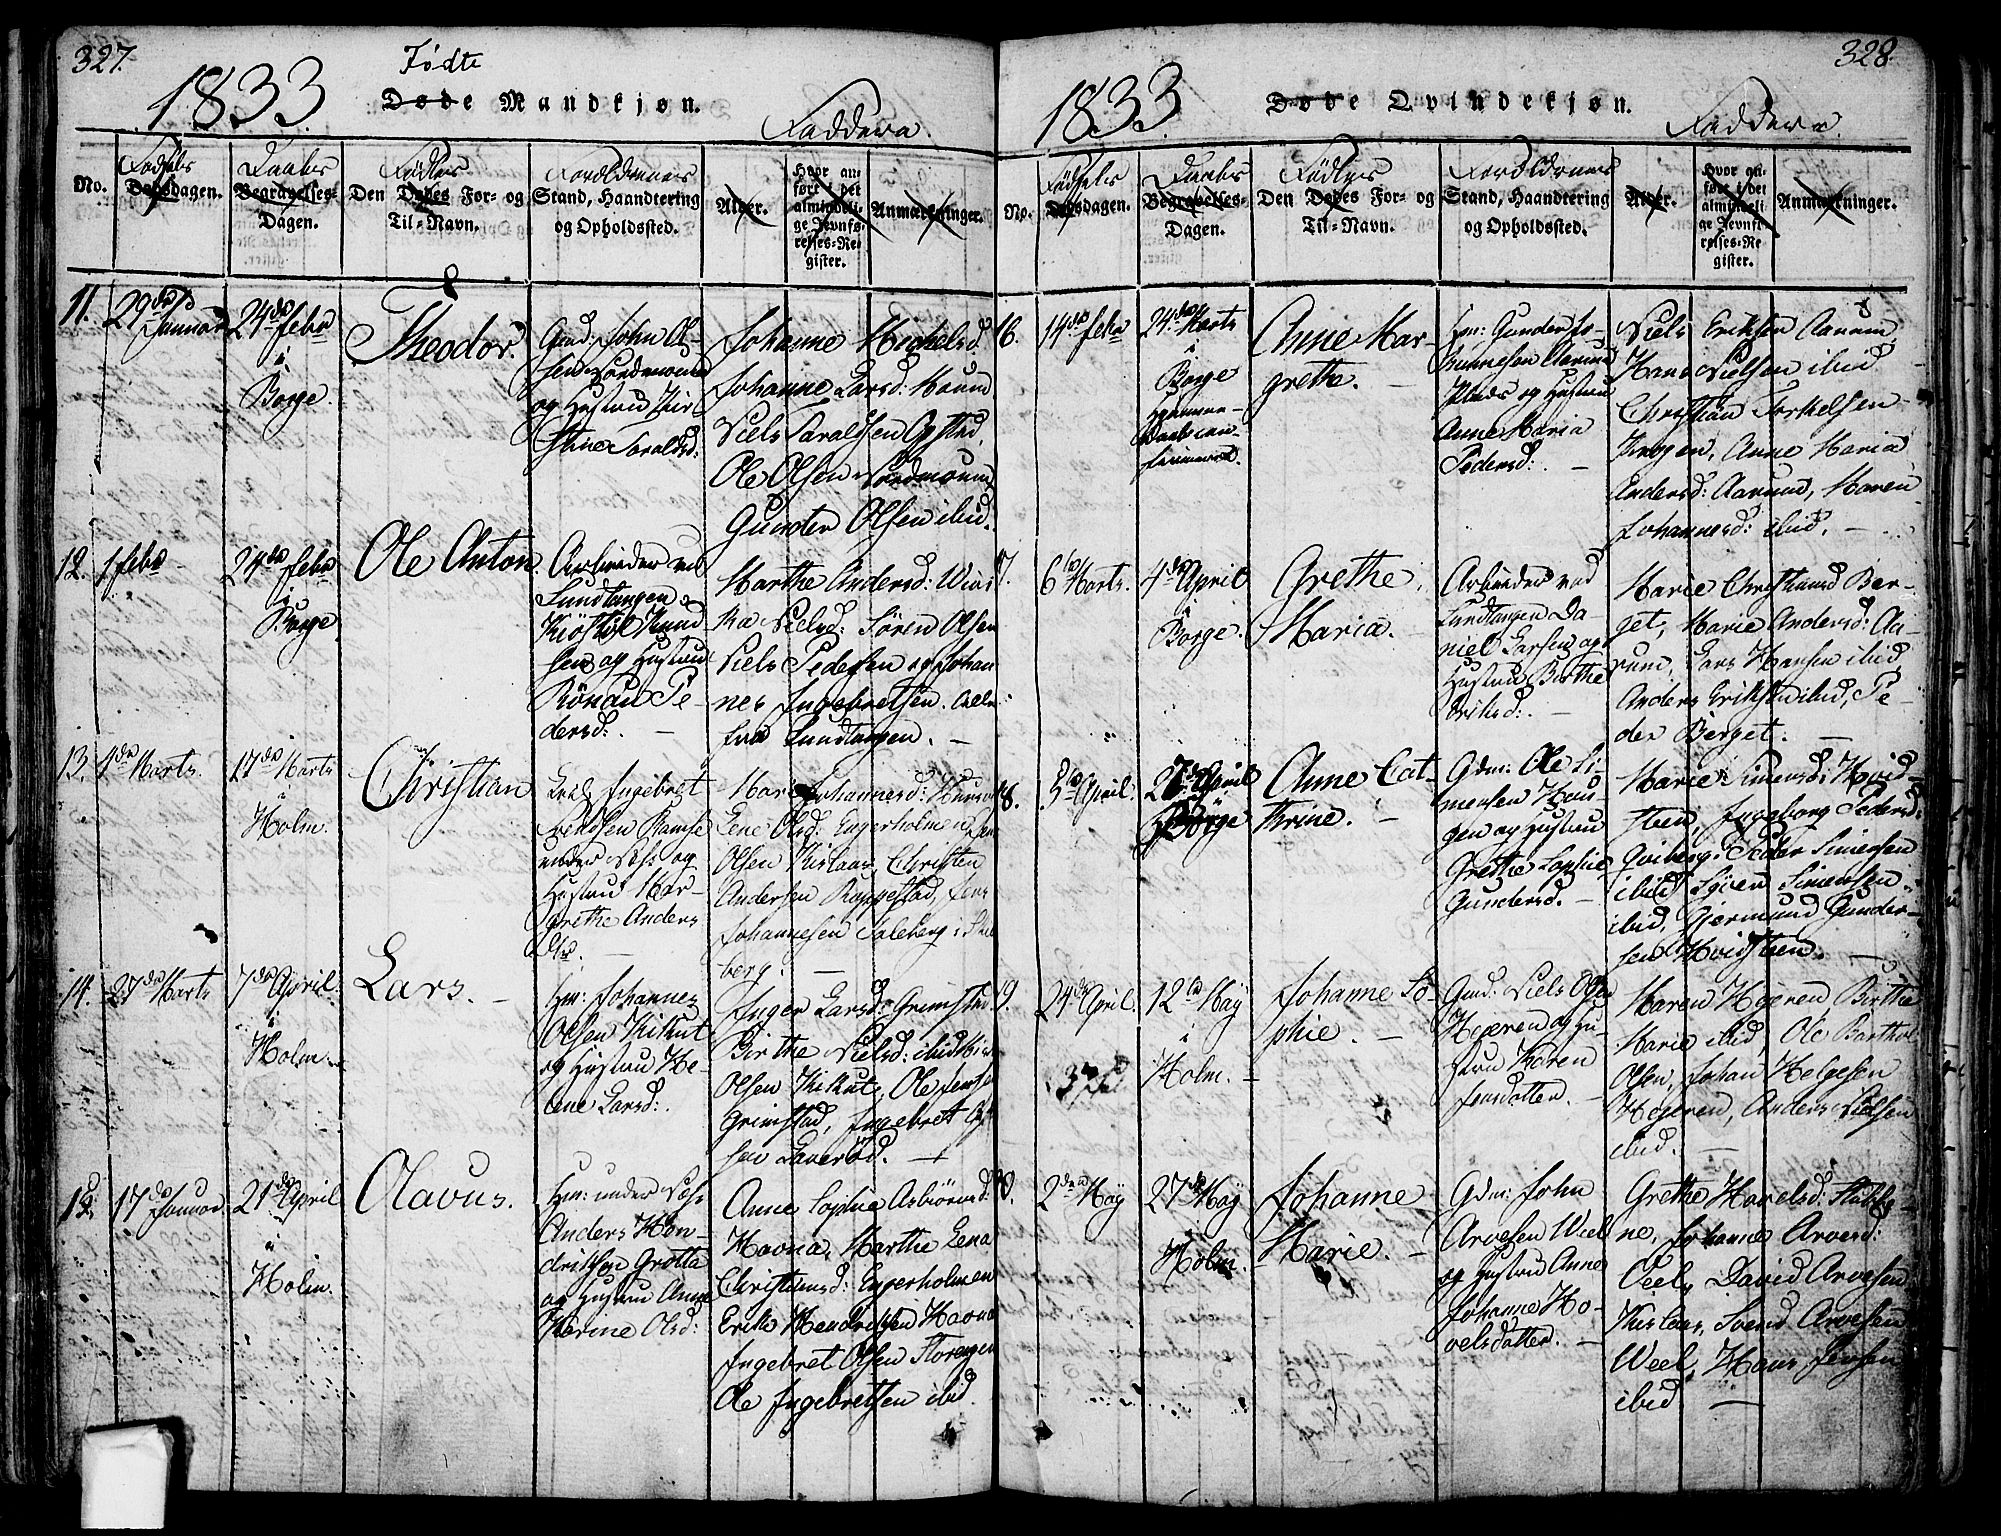 327.
1833
Fødte
Døde Mandkjøn.
Faddere.
No.
Fødsels
Dødsdagen.
Daabs
Begravelses-
Dagen.
Fødtes
Den Dødes For- og
Til-Navn.
Forældrenes
Stand, Haandtering
og Opholdssted.
Alder.
Hvor an-
ført i det
almindeli-
ge Jevnfø-
relses-Re-
gister.
Anmærkninger.
11.
29de
Januar
24de Febr
i
Borge.
Theodor.
Gmd: John Ol-
sen Nordmoum
og Hustru Kir-
stine Haraldsd:
Johanne Michelsd.
Johanne Larsd: Moum
Niels Haraldsen
Ole Olsen Nordmoum
Gunder Olsen ibid.
12.
1 Febr
24de Febr
i
Borge.
Ole Anton.
Arbeider ved
Sundtangen
Knud
sen og Hustru
Pe-
dersd:. —
Marthe Andersd:
Nielsd: Søren Olsen
Niels Pedersen og Johan
nes Ingebretsen. alle
fra Sundtangen. —
13.
1de Marts.
17de Marts
i
Holm.
Christian
Ingebret
Svendsen
under Næs og
Hustru Mar-
grethe Anders
Dtr. —
Johannesd:
Lene Olsd: Engerholmen
Olsen Kislaas, Christen
Andersen Roppestad, Jens
Johannesen
berg: —
14.
27de Marts
7de April.
i
Holm.
Lars. —
Hmd: Johannes
Olsen Kikut
og Hustru He-
lene Larsd:.
Inger Larsd: Grimstad
Birthe Nielsd: ibid
Olsen Kikut, Ole Jensen
Grimstad, Ingebret
sen Lauerød. —
15.
17de Januar
21de April
i
Holm.
Olavus.
Hmd: under Næs
Anders Hen-
driksen Grotte
og Hustru Anne
Karine Olsd:
Anne Sophie Asbiørnsd:
Havna, Marthe Lena
Christiansd: Engerholmen
Erik Hendriksen Havna
Ingebret Olsen Storengen
Ole Ingebretsen ibid.
328.
1833.
Døde Qvindekjøn.
Faddere.
No.
Fødsels
Dødsdagen.
Daabs
Begravelses-
Dagen.
Fødtes
Den Dødes For- og
Til-Navn.
Forældrenes
Stand, Haandtering
og Opholdssted.
Alder.
Hvor an-
ført i det
almindeli-
ge Jevnfø-
relses-Re-
gister.
Anmærkninger.
16.
14de Febr
24de Marts
i
Borge
Hjemme-
daab con-
firmeret.
Anne Mar-
grethe. —
Hmd: Gunder Jo-
hannesen Aarum
Plads og Hustru
Anne Maria
Pedersd:. —
Niels Eriksen Aarum,
Hans Nielsen ibid
Christian Torkelsen
Krogen, Anne Maria
Andersd: Aarum, Maren
Johannesd: ibid. —
7.
6te Marts.
4de April
i
Borge.
Grethe
Maria. —
Arbeider ved
Sundtangen Da-
niel Larsen og
Hustru Birthe
Eriksd:. —
Marie Christiansd Ber-
get, Marie Andersd: Aa-
rum, Lars Hansen ibid,
Anders Eriksen ibid, Pe-
der Berget. —
8.
5te April.
27de April
i Borge
Anne Cat-
thrine. —
Gdm: Ole Si-
mensen Hau-
gen og Hustru
Grethe Sophie
Gundersd. —
Marie Simensd: Hvid-
steen, Ingeborg Pedersd:
Peder Simensen
ibid, Søren Simensen
ibid, Gjermund Gunder-
sen Hvidsteen. —
9.
24de April.
12te May
i
Holm. —
Johanne So-
phie. —
Gmd: Niels Olsen
Hegeren og Hu-
stru Karen
Jensdatter. —
Maren Hegeren, Birthe
Marie ibid, Ole Barthol
Olsen, Johan Helgesen
Hegeren, Anders Nielsen
ibid. —
2den May
27de May
i
Holm. —
Johanne
Marie. —
Gdm: John
Arvesen Weel
og Hustru Anne
Johanne Ho-
velsdatter. —
Grethe Hovelsd:
ne, Johanne Arvesd:
Veel, David Arvesen
Kislaas, Svend Arvesen
Weel, Hans Jensen
ibid —